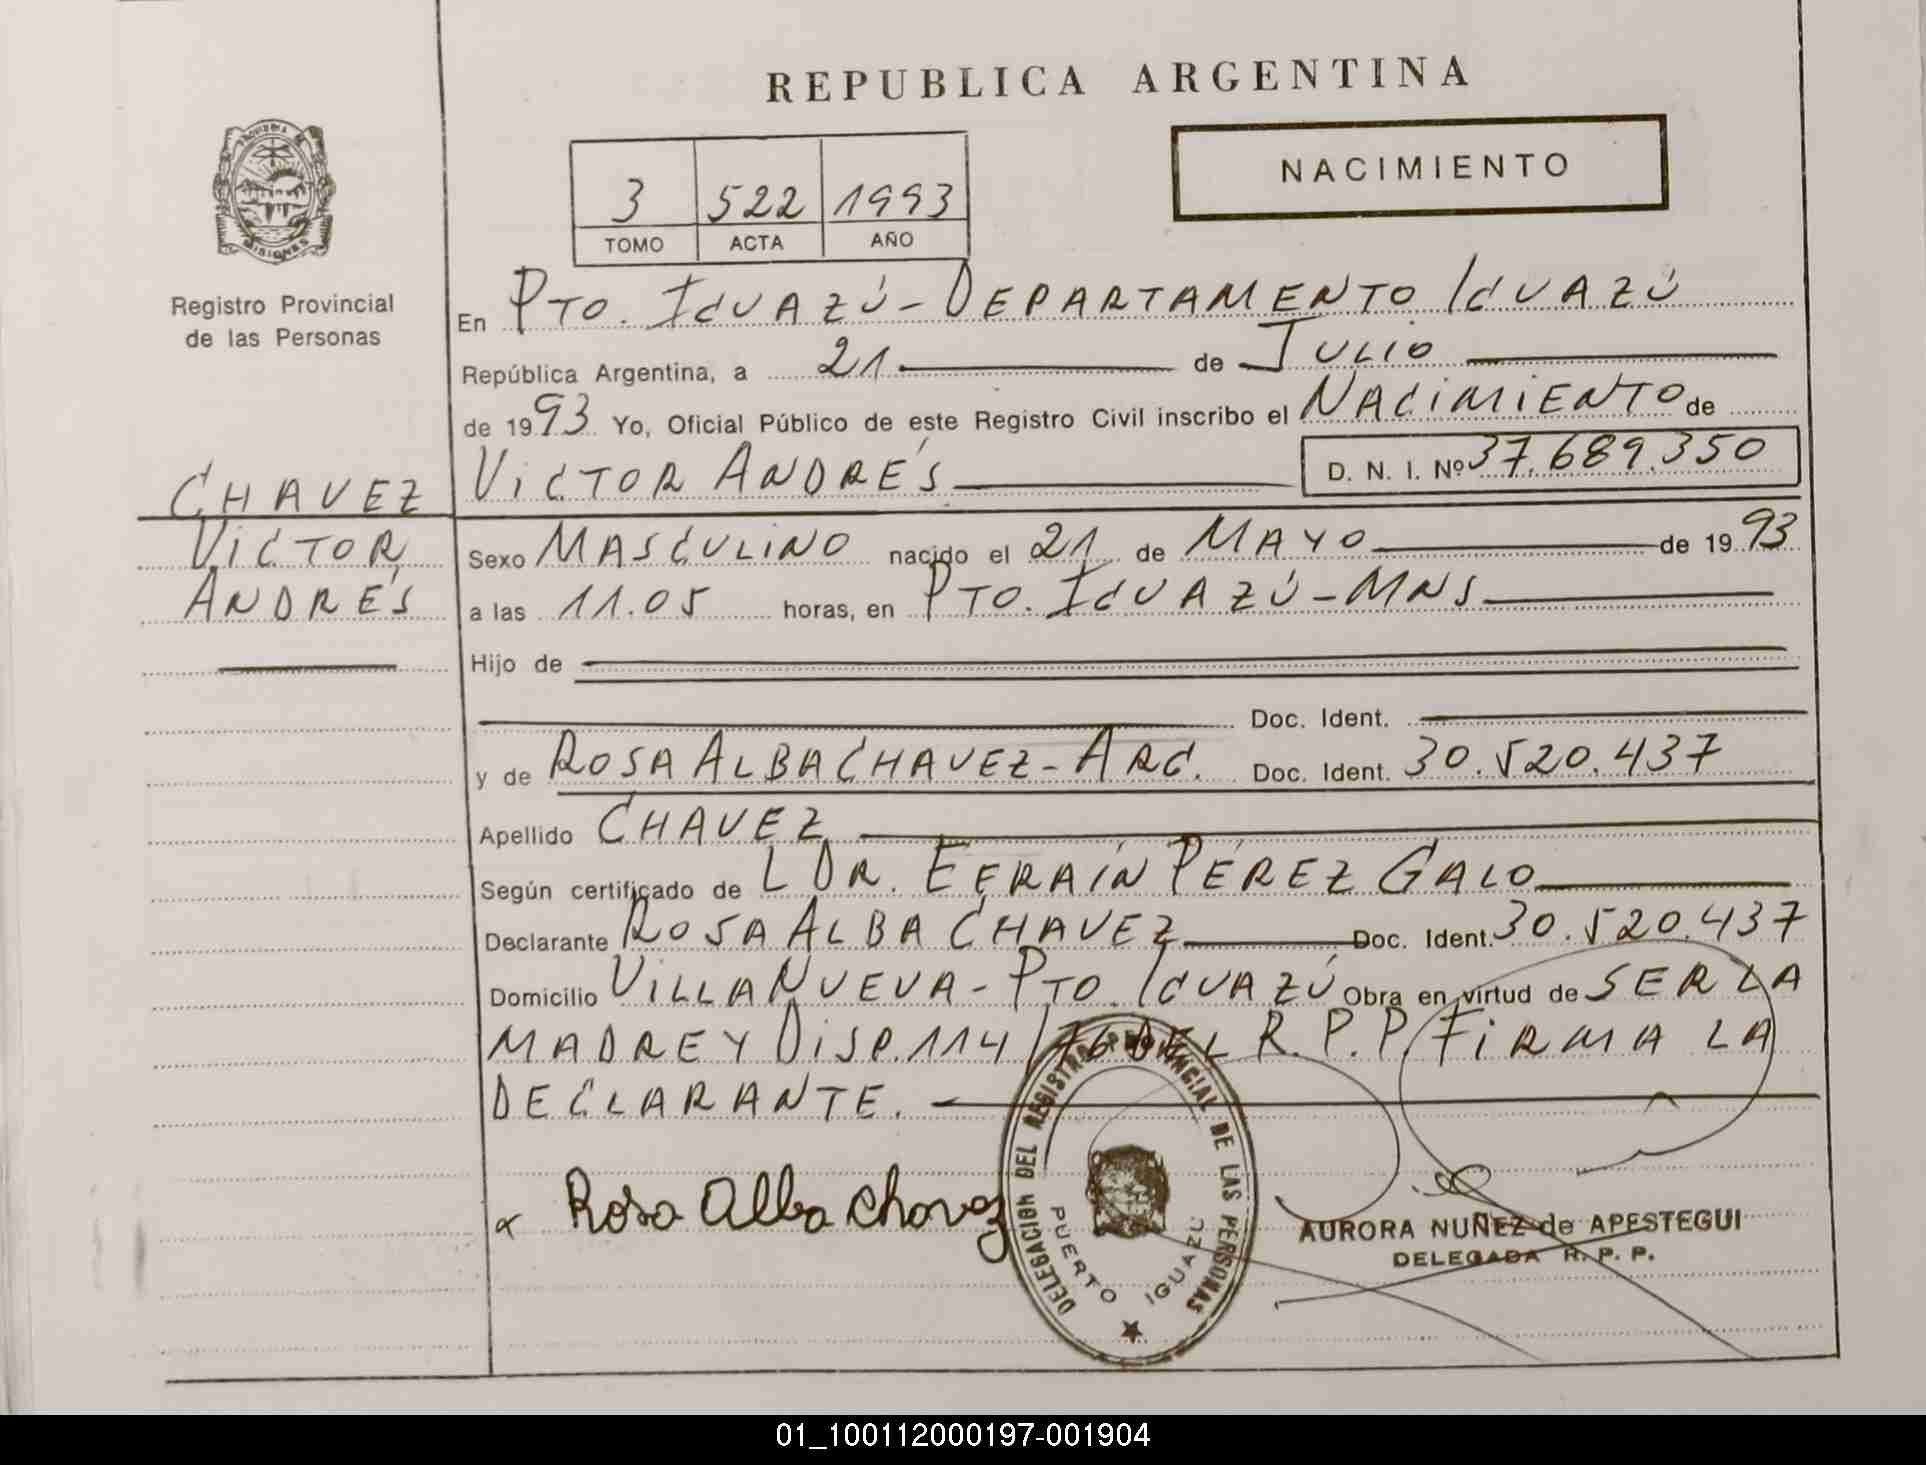 REPUBLICA ARGENTINA
NACIMIENTO
3 522 1993
TOMO ACTA AÑO
MISIONES
Registro Provincial
de las Personas
En PTO. IGUAZÚ - DEPARTAMENTO IGUAZÚ
República Argentina, a 21 de JULIO
de 1993 Yo, Oficial Público de este Registro Civil inscribo el NACIMIENTO de
VICTOR ANDRÉS D. N. I. Nº 37.689.350
CHAVEZ
VICTOR
ANDRÉS
Sexo MASCULINO nacido el 21 de MAYO de 1993
a las 11.05 horas, en PTO. IGUAZÚ - MNS
Hijo de
Doc. Ident.
y de ROSA ALBA CHAVEZ - ARG. Doc. Ident. 30.520.437
Apellido CHAVEZ
Según certificado de L DR. EFRAÍN PÉREZ GALO
Declarante ROSA ALBA CHAVEZ Doc. Ident. 30.520.437
Domicilio VILLA NUEVA - PTO. IGUAZÚ Obra en virtud de SER LA
MADRE Y DISP. 114/76 DEL R.P.P. FIRMA LA
DECLARANTE.
Rosa Alba Chavez
DELEGACION DEL REGISTRO PROVINCIAL DE LAS PERSONAS
PUERTO IGUAZU
AURORA NUÑEZ de APESTEGUI
DELEGADA R. P. P.
01_100112000197-001904